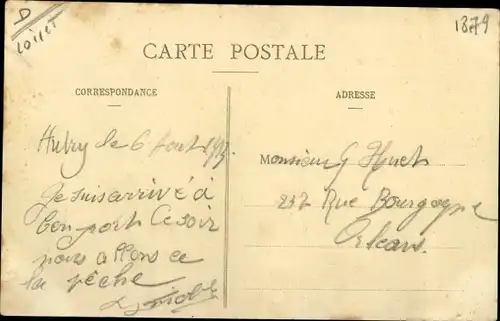 D
Loiret
1879
CARTE POSTALE
CORRESPONDANCE
ADRESSE
le 6 Aout
Je suis arrivé à
bon port Ce soir
nous allons a
la pêche
Monsieur G Huet
237 Rue Bourgogne
Orleans.